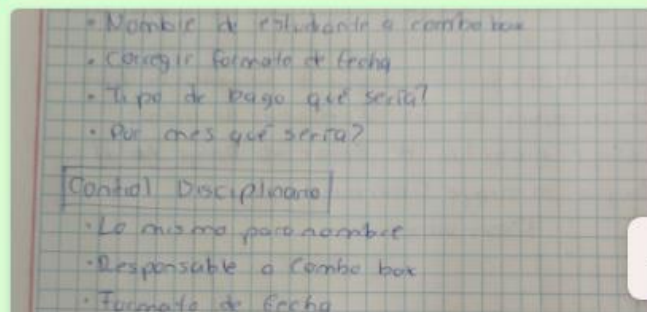 • Nombre de estudiante a combo box
• Corregir formato de fecha
• Tipo de pago qué sería?
• Por mes qué sería?
Control Disciplinario
• Lo mismo para nombre
• Responsable a combo box
• Formato de fecha